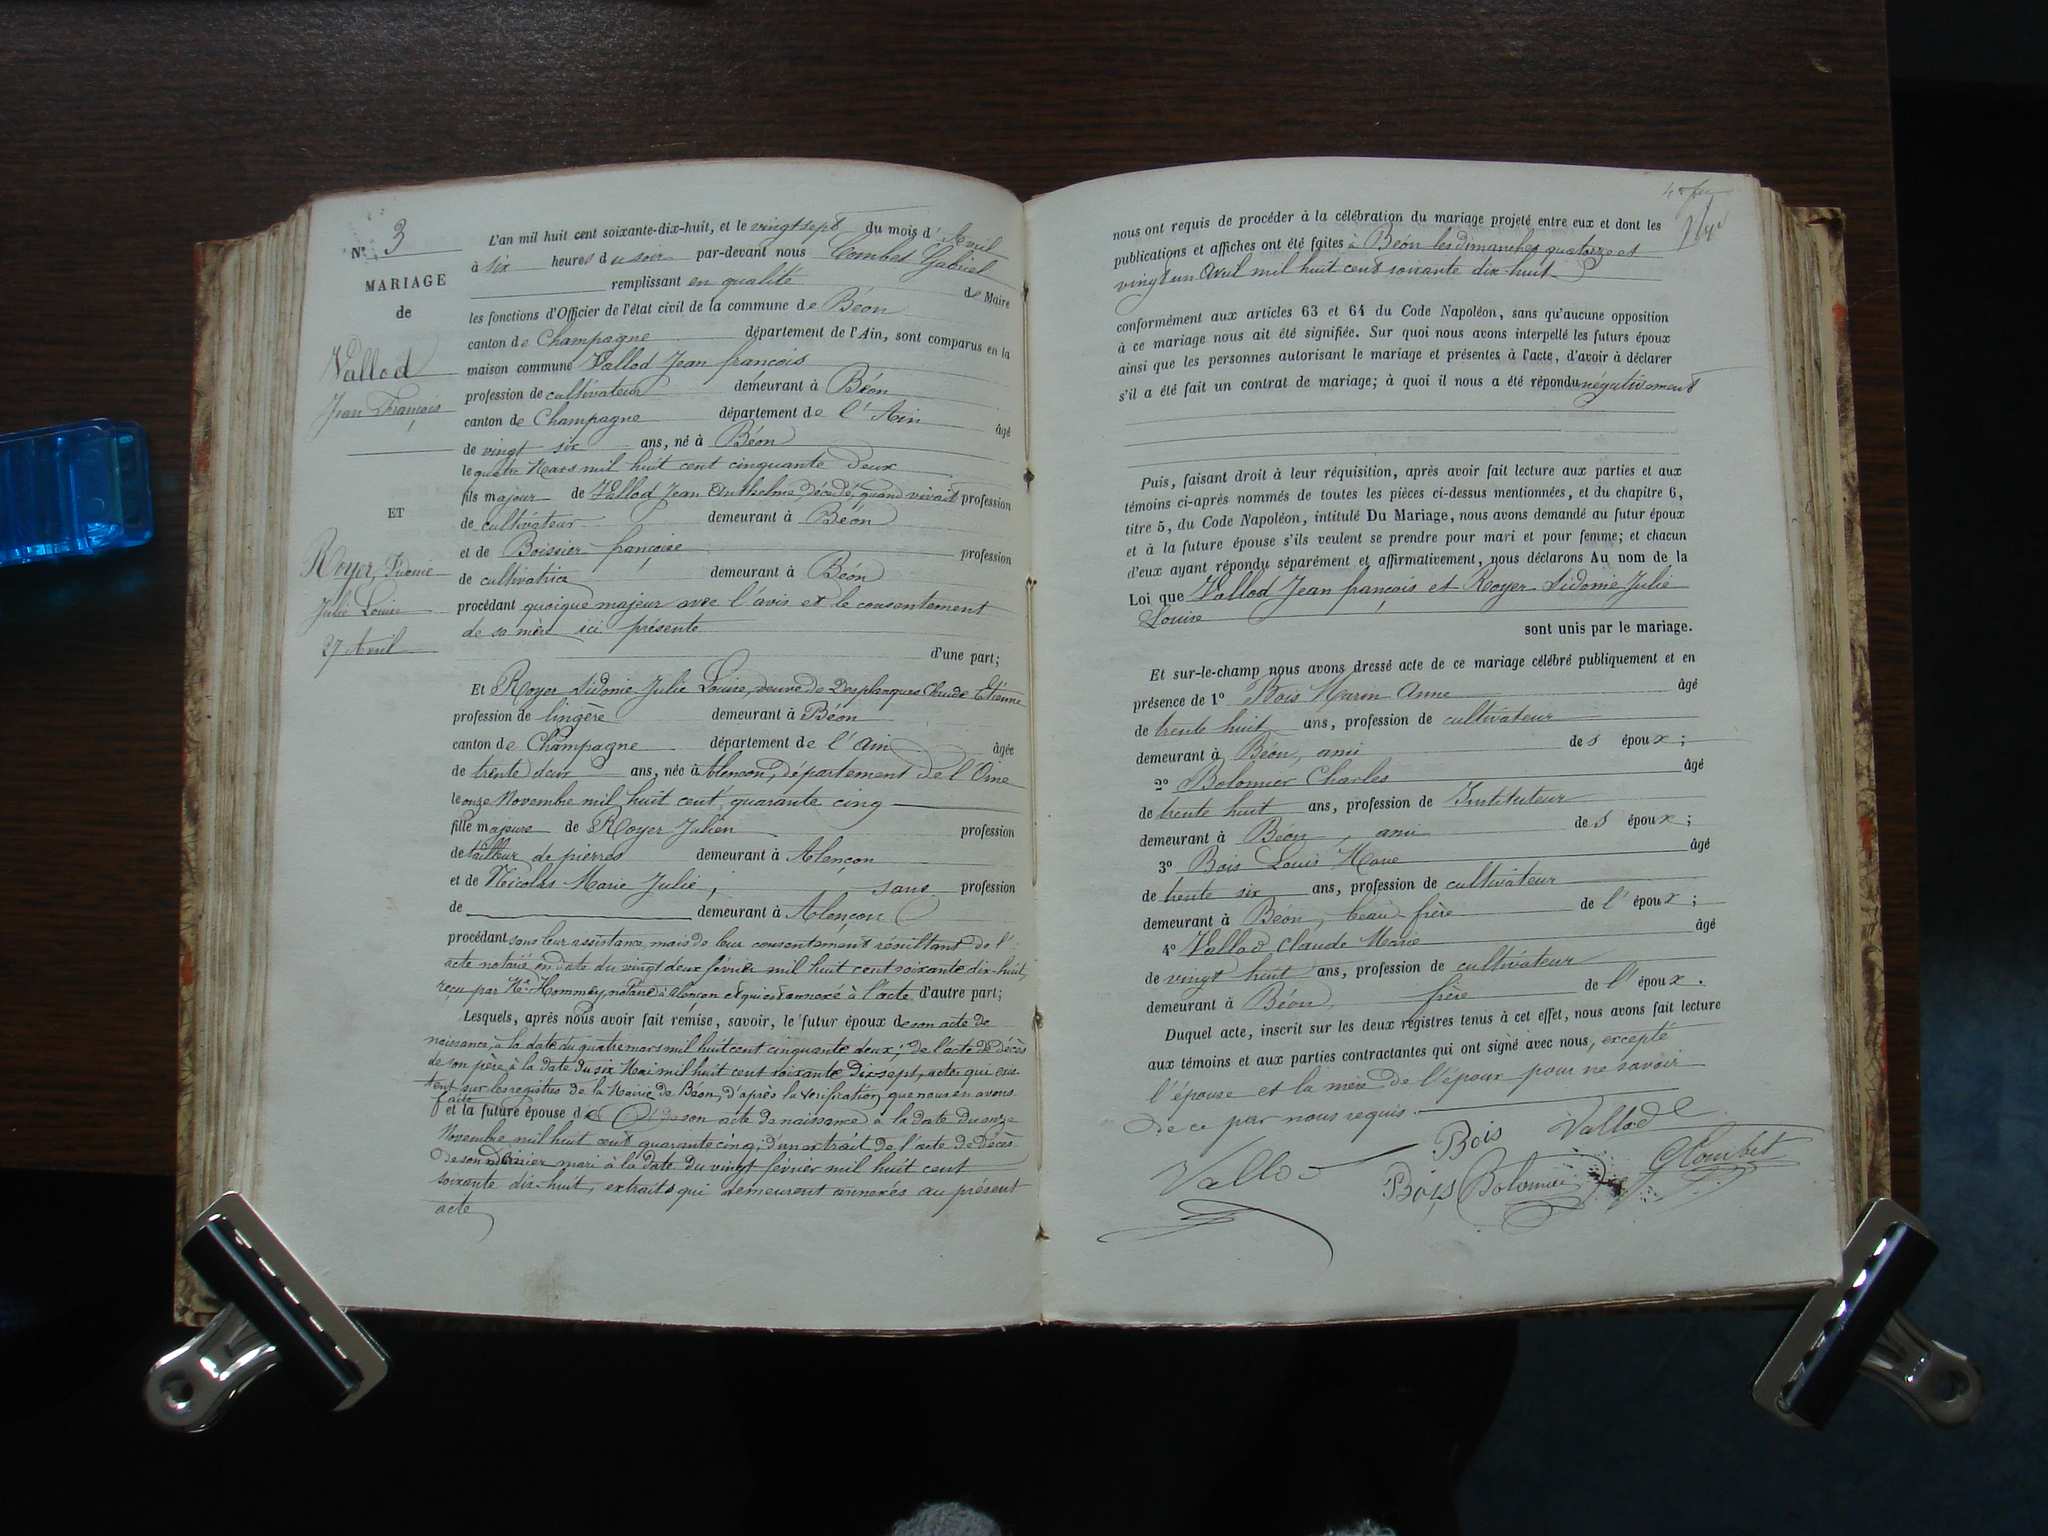 N° 3
MARIAGE
de
Vallod
Jean François
ET
Royer, Sidonie
Julie Louise
27 Avril
L'an mil huit cent soixante-dix-huit, et le vingt sept du mois d'Avril
à six heures du soir par-devant nous Combet Gabriel
remplissant en qualité de Maire
les fonctions d'Officier de l'état civil de la commune de Béon
canton de Champagne département de l'Ain, sont comparus en la
maison commune Vallod Jean françois
profession de cultivateur demeurant à Béon
canton de Champagne département de l'Ain âgé
de vingt six ans, né à Béon
le quatre Mars mil huit cent cinquante deux
fils majeur de Vallod Jean Anthelme, décédé, quand vivait profession
de cultivateur demeurant à Béon
et de Boissier françoise profession
de cultivatrice demeurant à Béon
procédant quoique majeur avec l'avis et le consentement
de sa mère ici présente
d'une part;
Et Royer Sidonie Julie Louise, veuve de Desplanques Claude Etienne
profession de lingère demeurant à Béon
canton de Champagne département de l'Ain âgée
de trente deux ans, née à Alençon, département de l'Orne
le onze Novembre mil huit cent quarante cinq
fille majeure de Royer Julien profession
de tailleur de pierres demeurant à Alençon
et de Nicolas Marie Julie, sans profession
de demeurant à Alençon
procédant sans leur assistance, mais de leur consentement résultant de l'
acte notarié en date du vingt deux février mil huit cent soixante dix-huit,
reçu par Me Hommey, notaire à Alençon et qui est annexé à l'acte d'autre part;
Lesquels, après nous avoir fait remise, savoir, le futur époux de son acte de
naissance, à la date du quatre mars mil huit cent cinquante deux; de l'acte de décès
de son père à la date du six Mai mil huit cent soixante dix-sept, actes qui exis
tent sur les registres de la Mairie de Béon, d'après la vérification que nous en avons
faite
et la future épouse de son acte de naissance à la date du onze
Novembre mil huit cent quarante cinq; d'un extrait de l'acte de décès
de son dernier mari à la date du vingt février mil huit cent
soixante dix-huit, extraits qui demeurent annexés au présent
acte
nous ont requis de procéder à la célébration du mariage projeté entre eux et dont les
publications et affiches ont été faites à Béon les dimanches quatorze et
vingt un Avril mil huit cent soixante dix-huit
conformément aux articles 63 et 64 du Code Napoléon, sans qu'aucune opposition
à ce mariage nous ait été signifiée. Sur quoi nous avons interpellé les futurs époux
ainsi que les personnes autorisant le mariage et présentes à l'acte, d'avoir à déclarer
s'il a été fait un contrat de mariage; à quoi il nous a été répondu négativement
Puis, faisant droit à leur réquisition, après avoir fait lecture aux parties et aux
témoins ci-après nommés de toutes les pièces ci-dessus mentionnées, et du chapitre 6,
titre 5, du Code Napoléon, intitulé Du Mariage, nous avons demandé au futur époux
et à la future épouse s'ils veulent se prendre pour mari et pour femme; et chacun
d'eux ayant répondu séparément et affirmativement, nous déclarons Au nom de la
Loi que Vallod Jean françois et Royer Sidonie Julie
Louise
sont unis par le mariage.
Et sur-le-champ nous avons dressé acte de ce mariage célébré publiquement et en
présence de 1° Bois Marin Anne âgé
de trente huit ans, profession de cultivateur
demeurant à Béon, ami de s époux;
2° Bolomier Charles âgé
de trente huit ans, profession de Instituteur
demeurant à Béon, ami de s époux;
3° Bois Louis Marie âgé
de trente six ans, profession de cultivateur
demeurant à Béon, beau frère de l'époux;
4° Vallod Claude Marie âgé
de vingt huit ans, profession de cultivateur
demeurant à Béon, frère de l'époux.
Duquel acte, inscrit sur les deux registres tenus à cet effet, nous avons fait lecture
aux témoins et aux parties contractantes qui ont signé avec nous, excepté
l'épouse et la mère de l'époux pour ne savoir
de ce par nous requis.
Bois Vallod
Vallod Bois Bolomier GCombet